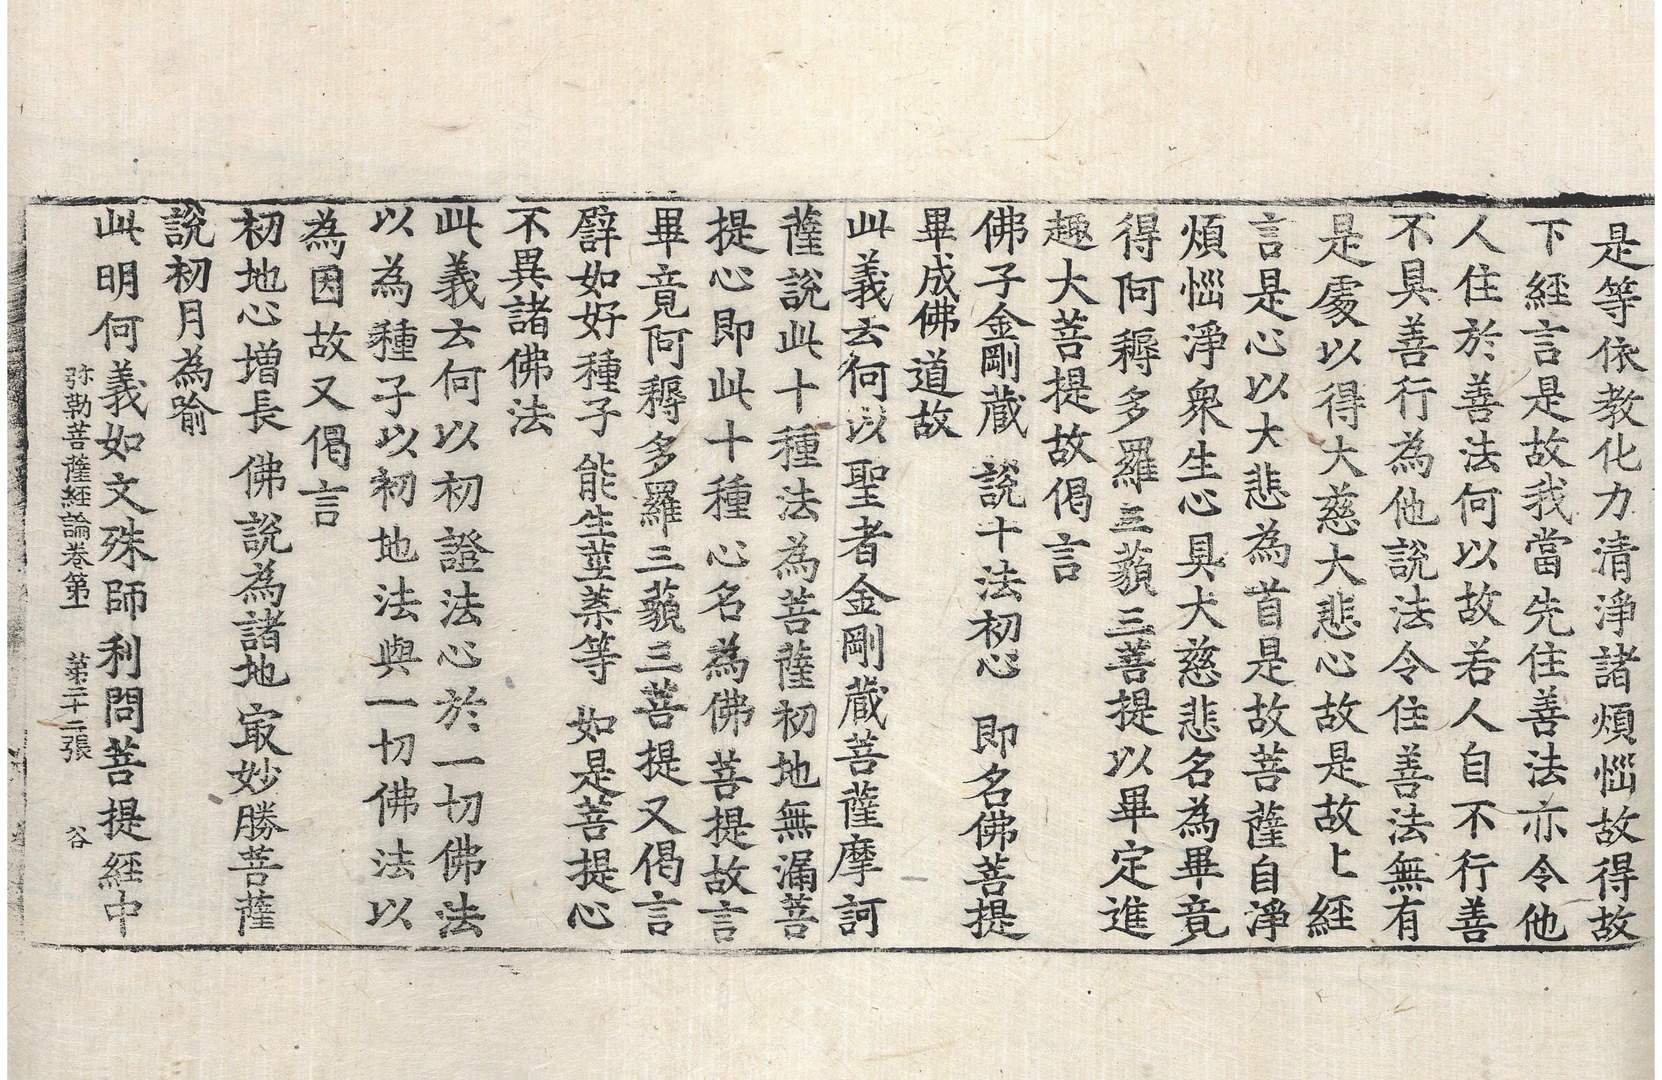 是等依教化力清淨諸煩惱故得故
下經言是故我當先住善法亦令他
人住於善法何以故若人自不行善
不具善行為他說法令住善法無有
是處以得大慈大悲心故是故上經
言是心以大悲為首是故菩薩自淨
煩惱淨衆生心具大慈悲名為畢竟
得阿耨多羅三藐三菩提以畢定進
趣大菩提故偈言
佛子金剛藏 說十法初心 即名佛菩提
畢成佛道故
此義云何以聖者金剛藏菩薩摩訶
薩說此十種法為菩薩初地無漏菩
提心即此十種心名為佛菩提故言
畢竟阿耨多羅三藐三菩提又偈言
譬如好種子 能生莖葉等 如是菩提心
不異諸佛法
此義云何以初證法心於一切佛法
以為種子以初地法與一切佛法以
為因故又偈言
初地心増長 佛說為諸地 㝡妙勝菩薩
說初月為喻
此明何義如文殊師利問菩提經中
弥勒菩薩經論卷第一 第二十二張 谷